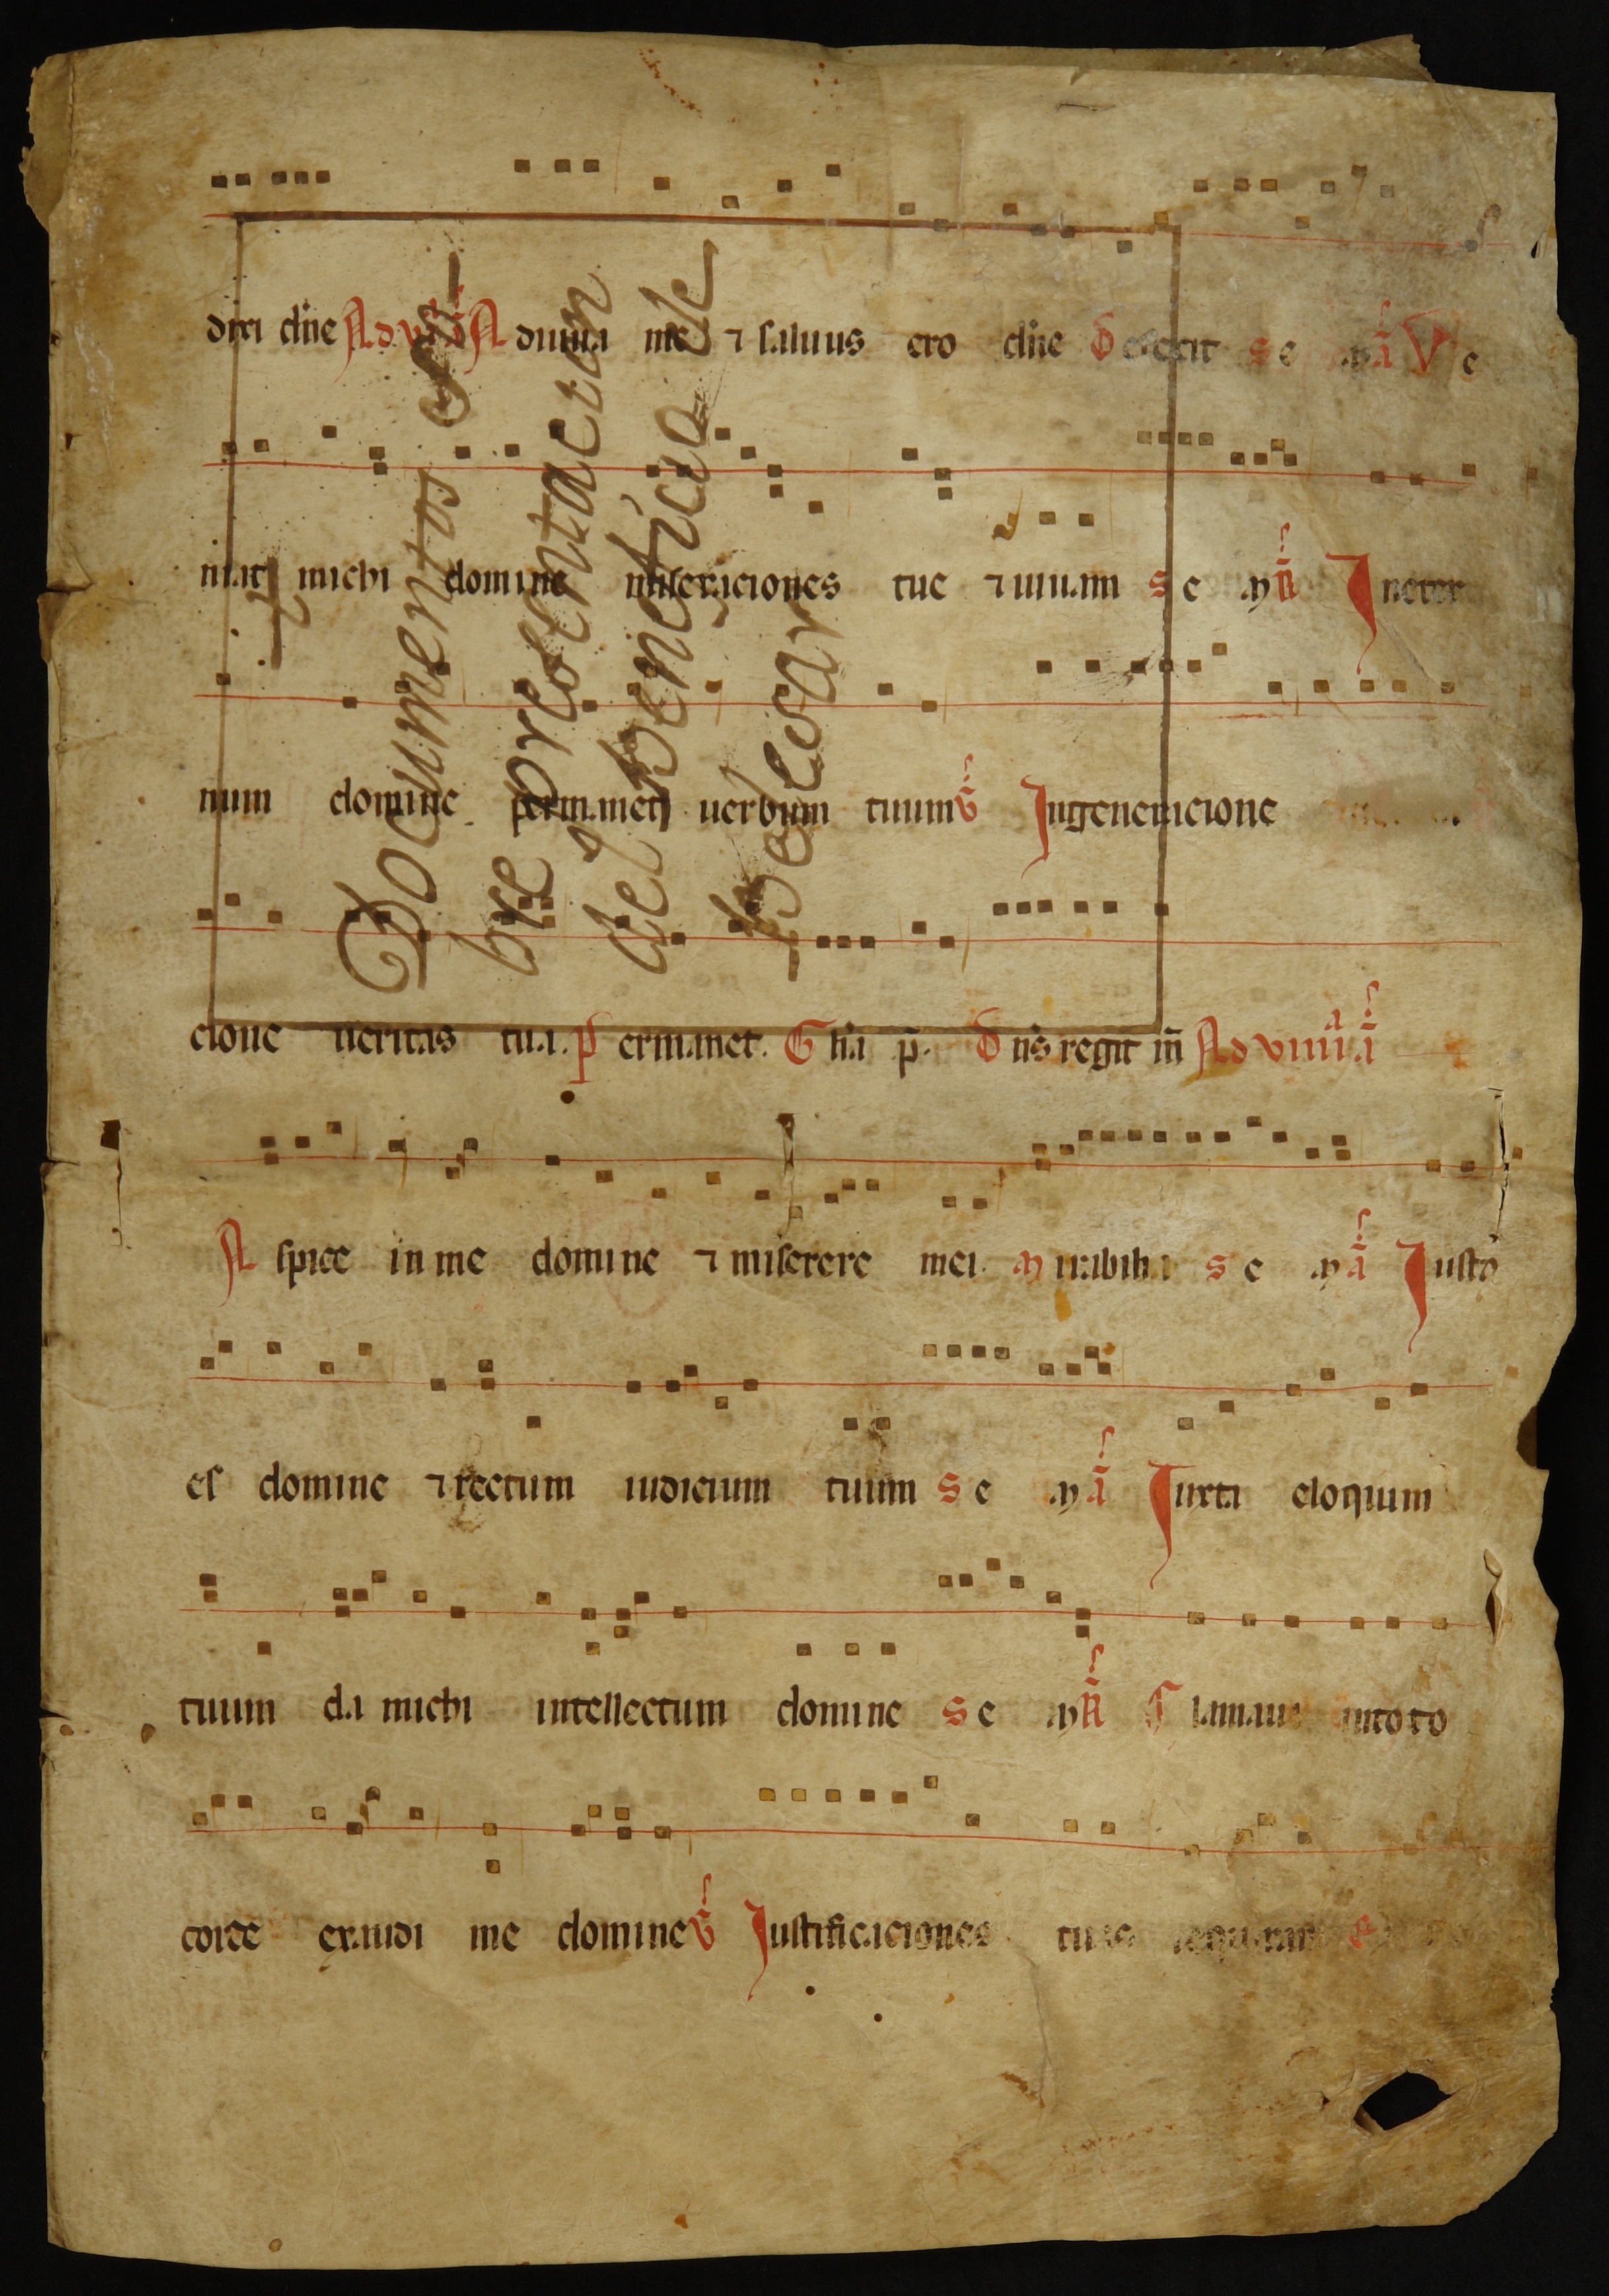 dixi dñe Ad vi A Adiuua me ⁊ saluus ero dñe Defecit se ayā Ve
niāt michi domine miseraciones tue ⁊ uiuam se ay R̃ Ineter
num domine permanet uerbum tuum V̄ Ingeneracione
cione ueritas tua. Permanet. Gl̃ia p̄. Dñs regit m̄ Ad viiii ā
Aspice in me domine ⁊ miserere mei. Mirabilia se ayā Iustꝰ
es domine ⁊ rectum iudicium tuum se ayā Iuxta eloquium
tuum da michi intellectum domine se ay R̃ Clamaui intoto
corde exaudi me domine V̄ Iustificaciones tuas requiram
Documentos so
bre presentacion
del beneficio de
Belcsar